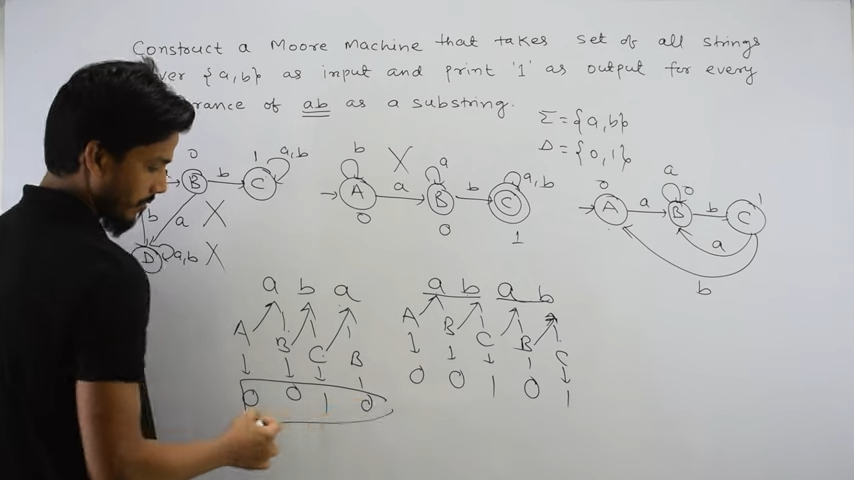 Construct a Moore Machine that takes set of all strings
ver {a,b} as input and print '1' as output for every
rance of ab as a substring.
Σ = {a,b}
Δ = {0,1}
0 B b 1 C a,b
b a X
D a,b X
b X
A a B a b C a,b
0 0 1
0 A a B a 0 b C 1
a
b
a b a
A B C B
0 0 1 0
a b a b
A B C B C
0 0 1 0 1